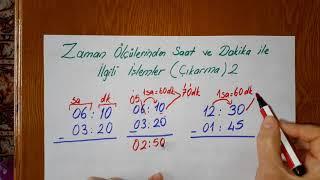 Zaman Ölçülerinden Saat ve Dakika ile
İlgili İşlemler (Çıkarma) 2
sa dk
06:10
- 03:20
1sa=60dk
05 70dk
06:10
- 03:20
02:50
1sa=60dk
12:30
- 01:45